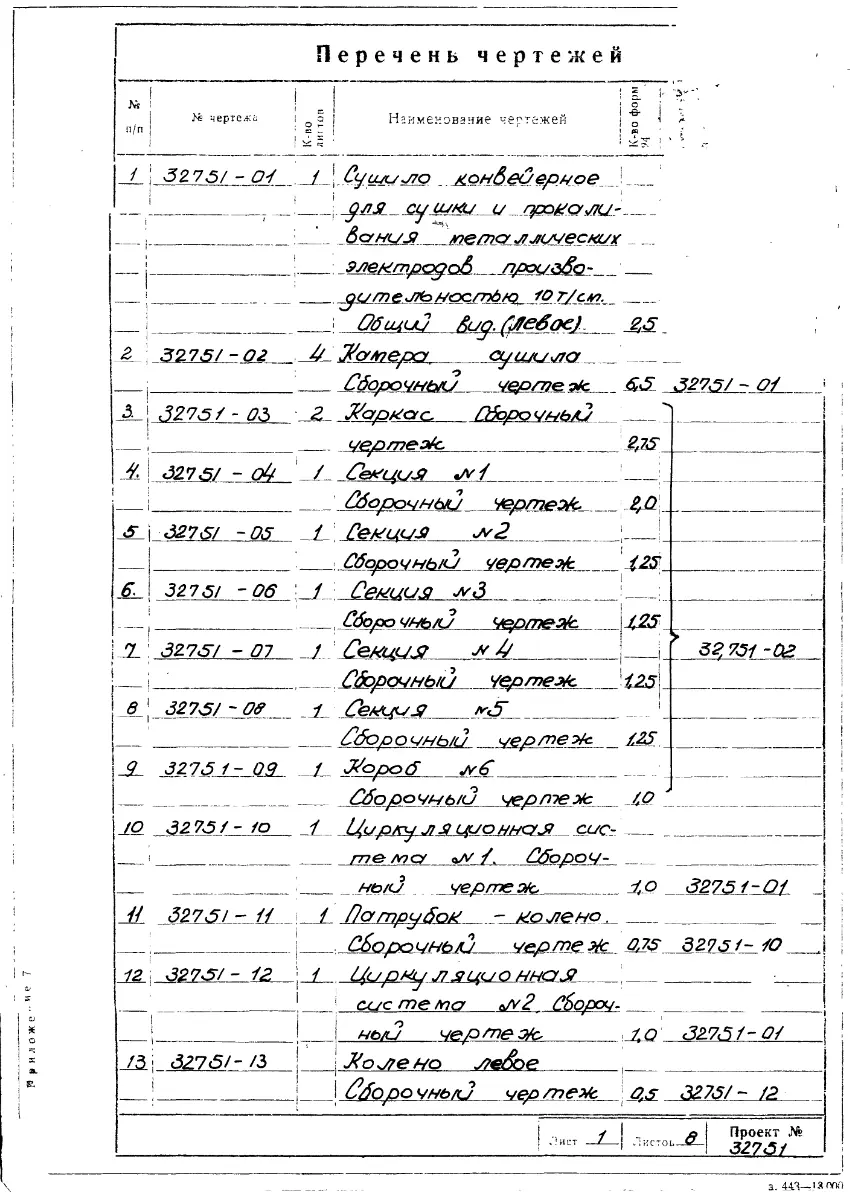 Перечень чертежей
№ п/п № чертежа К-во листов Наименование чертежей К-во форм 94
1 32751-01 1 Сушило конвейерное
для сушки и прокали-
вания металлических
электродов произво-
дительностью 10 т/см.
Общий вид. (Левое) 2,5
2 32751-02 4 Камера сушила
Сборочный чертеж 6,5 32751-01
3. 32751-03 2 Каркас Сборочный
чертеж 2,75
4. 32751-04 1 Секция №1
Сборочный чертеж 2,0
5 32751-05 1 Секция №2
Сборочный чертеж 1,25
6. 32751-06 1 Секция №3
Сборочный чертеж 1,25
7. 32751-07 1 Секция №4 32,751-02
Сборочный чертеж 1,25
8 32751-08 1 Секция №5
Сборочный чертеж 1,25
9 32751-09 1 Короб №6
Сборочный чертеж 1,0
10 32751-10 1 Циркуляционная сис-
тема №1. Сбороч-
ный чертеж 1,0 32751-01
11 32751-11 1 Патрубок - колено.
Сборочный чертеж 0,75 32751-10
12 32751-12 1 Циркуляционная
система №2. Сбороч-
ный чертеж 1,0 32751-01
13 32751-13 Колено левое
Сборочный чертеж 0,5 32751-12
Лист 1 Листов 8 Проект №
32751
Приложение 7
з. 443—18 000